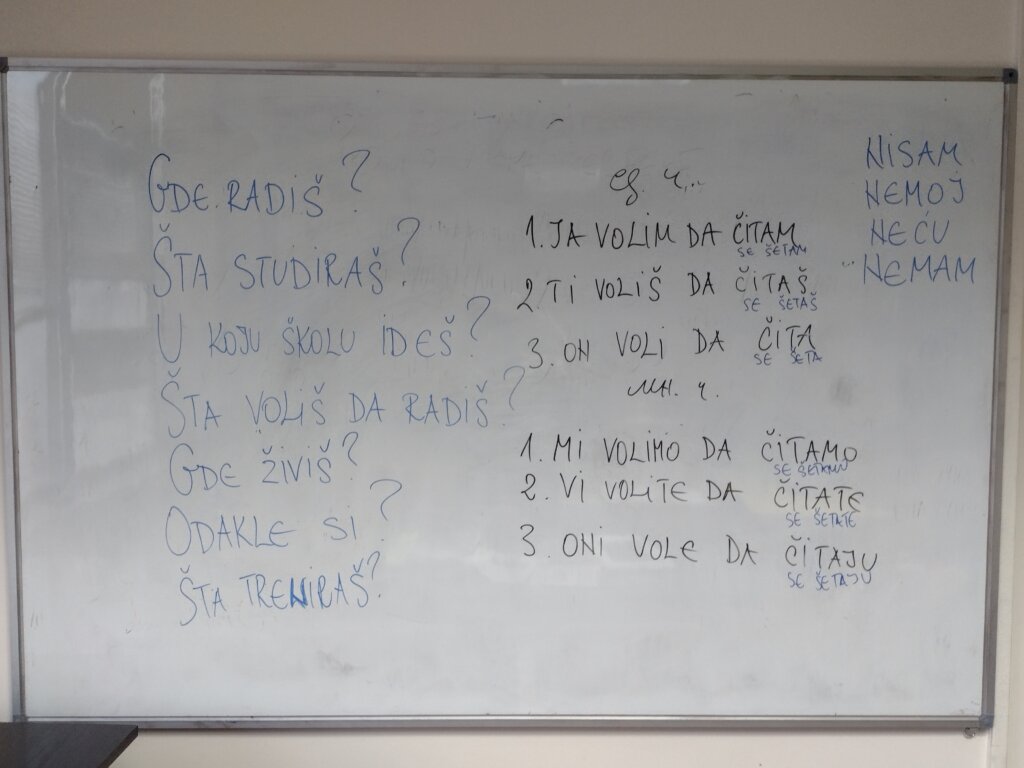 GDE RADIŠ?
ŠTA STUDIRAŠ?
U KOJU ŠKOLU IDEŠ?
ŠTA VOLIŠ DA RADIŠ?
GDE ŽIVIŠ?
ODAKLE SI?
ŠTA TRENIRAŠ?
ед. ч..
1. JA VOLIM DA ČITAM
SE ŠETAM
2. TI VOLIŠ DA ČITAŠ
SE ŠETAŠ
3. ON VOLI DA ČITA
SE ŠETA
мн. ч.
1. MI VOLIMO DA ČITAMO
SE ŠETAMO
2. VI VOLITE DA ČITATE
SE ŠETATE
3. ONI VOLE DA ČITAJU
SE ŠETAJU
NISAM
NEMOJ
NEĆU
NEMAM